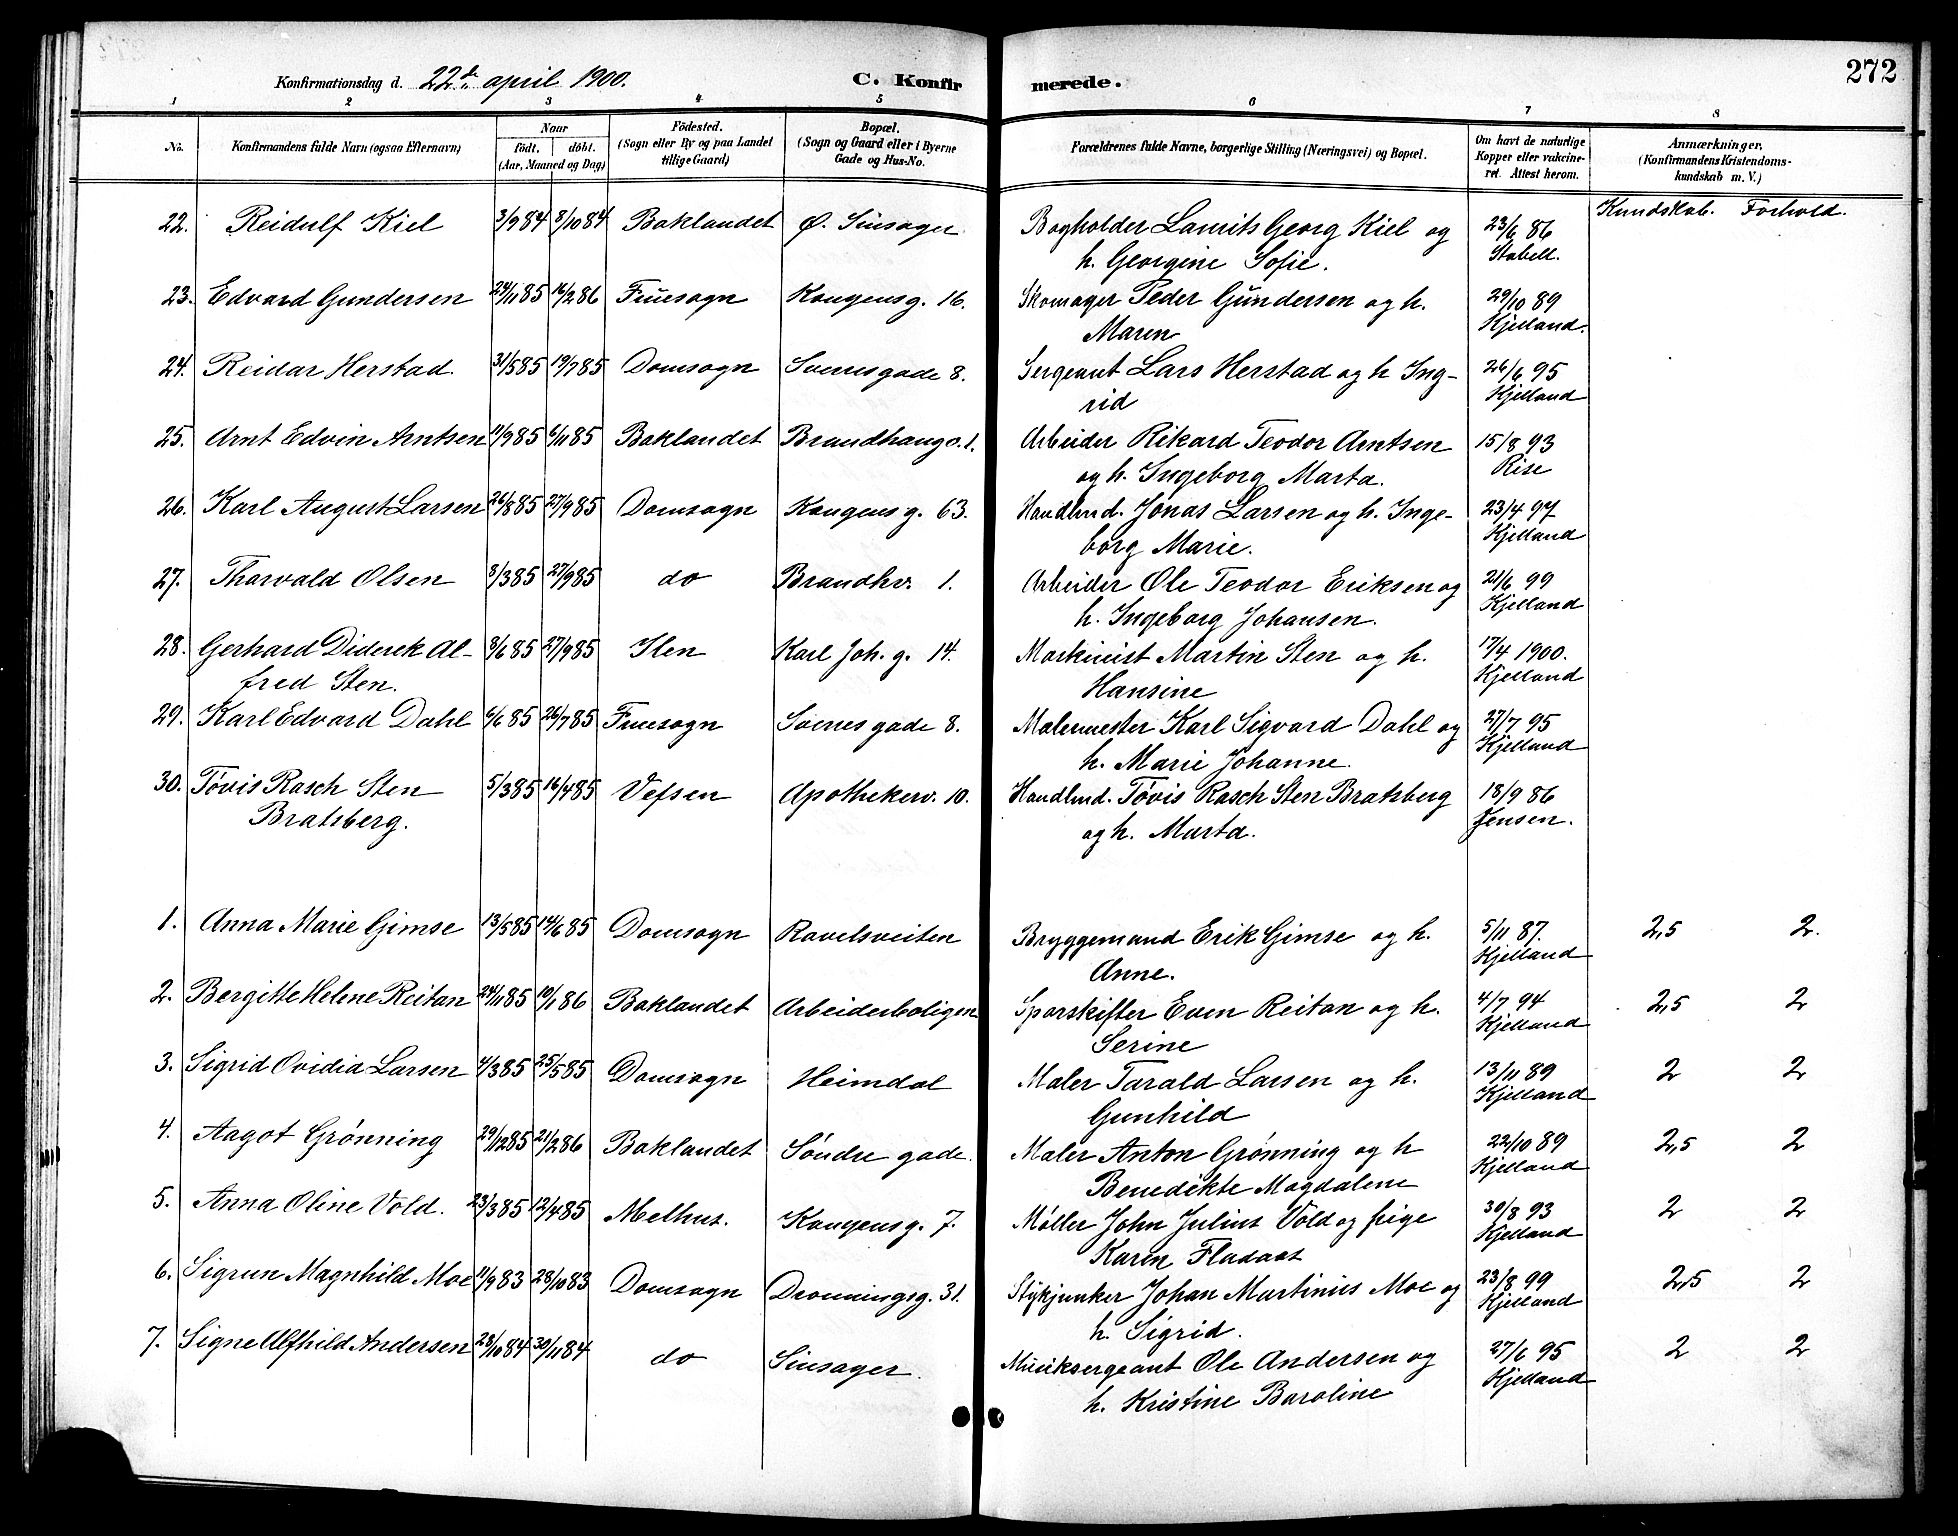 272
Konfirmationsdag d. 22de april 1900. C. Konfirmerede.
1 2 3 4 5 6 7 8
No. Konfirmandens fulde Navn (ogsaa Efternavn) Naar födt. döbt. (Aar, Maaned og Dag) Födested. (Sogn eller By og paa Landet tillige Gaard) Bopæl. (Sogn og Gaard eller i Byerne Gade og Hus-No. Forældrenes fulde Navne, borgerlige Stilling (Næringsvei) og Bopæl. Om havt de naturlige Kopper eller vakcineret. Attest herom. Anmærkninger. (Konfirmandens Kristendomskundskab m. V.)
Kundskab. Forhold.
22. Reidulf Kiel 3/9 84 8/10 84 Baklandet Ø. Sinsager Bogholder Laurits Georg Kiel og 23/6 86
h. Georgine Sofie. Stabell.
23. Edvard Gundersen 24/11 85 16/2 86 Fruesogn Kongensg. 16. Skomager Peder Gundersen og h. 29/10 89
Maren Kjelland.
24. Reidar Herstad 31/5 85 19/7 85 Domsogn Sverresgade 8. Sergeant Lars Herstad og h Ing- 26/6 95
rid Kjelland
25. Arnt Edvin Arntsen 11/9 85 6/11 85 Baklandet Brandhaugv. 1. Arbeider Rikard Teodor Arntsen 15/8 93
og h. Ingeborg Marta. Rise
26. Karl August Larsen 26/8 85 27/9 85 Domsogn Kongensg. 63. Handlmd. Jonas Larsen og h. Inge- 23/4 97
borg Marie. Kjelland
27. Thorvald Olsen 8/3 85 27/9 85 do Brandhv. 1. Arbeider Ole Teodor Eriksen og 21/6 99
h. Ingeborg Johansen. Kjelland
28. Gerhard Diderek Al- 8/6 85 27/9 85 Ilen Karl Joh. g. 14. Maskinist Martin Sten og h. 17/4 1900.
fred Sten. Hansine Kjelland
29. Karl Edvard Dahl 6/6 85 26/7 85 Fruesogn Sverresgade 8. Malermester Karl Sigvard Dahl og 27/7 95
h. Marie Johanne. Kjelland
30. Tøvis Rasch Sten 5/3 85 16/4 85 Vefsen Apothekerv. 10. Handlmd. Tøvis Rasch Sten Bratsberg 18/9 86
Bratsberg. og h. Marta. Jensen.
1. Anna Marie Gimse 13/5 85 14/6 85 Domsogn Ravelsveiten Bryggemand Erik Gimse og h. 5/11 87. 2,5 2.
Anne. Kjelland
2. Bergitte Helene Reitan 24/11 85 10/1 86 Baklandet Arbeiderboligen Sporskifter Even Reitan og h. 4/7 94 2,5 2
Serine Kjelland
3. Sigrid Ovidia Larsen 4/3 85 25/5 85 Domsogn Heimdal Maler Tarald Larsen og h. 13/11 89 2 2
Gunhild Kjelland
4. Aagot Grønning 29/12 85 21/2 86 Baklandet Søndre gade. Maler Anton Grønning og h 22/10 89 2,5 2
Benedikte Magdalene Kjelland
5. Anna Oline Vold. 23/3 85 12/4 85 Melhus. Kongensg. 7. Møller John Julius Vold og pige 30/8 93 2 2
Karen Fladaas Kjelland
6. Sigrun Magnhild Moe 11/9 83 28/10 83 Domsogn Dronningsg. 31. Stykjunker Johan Martinius Moe og 23/8 99 2,5 2
h. Sigrid. Kjelland
7. Signe Alfhild Andersen 28/10 84 30/11 84 do Sinsager. Musiksergeant Ole Andersen og 27/6 95 2 2
h. Kristine Baroline Kjelland